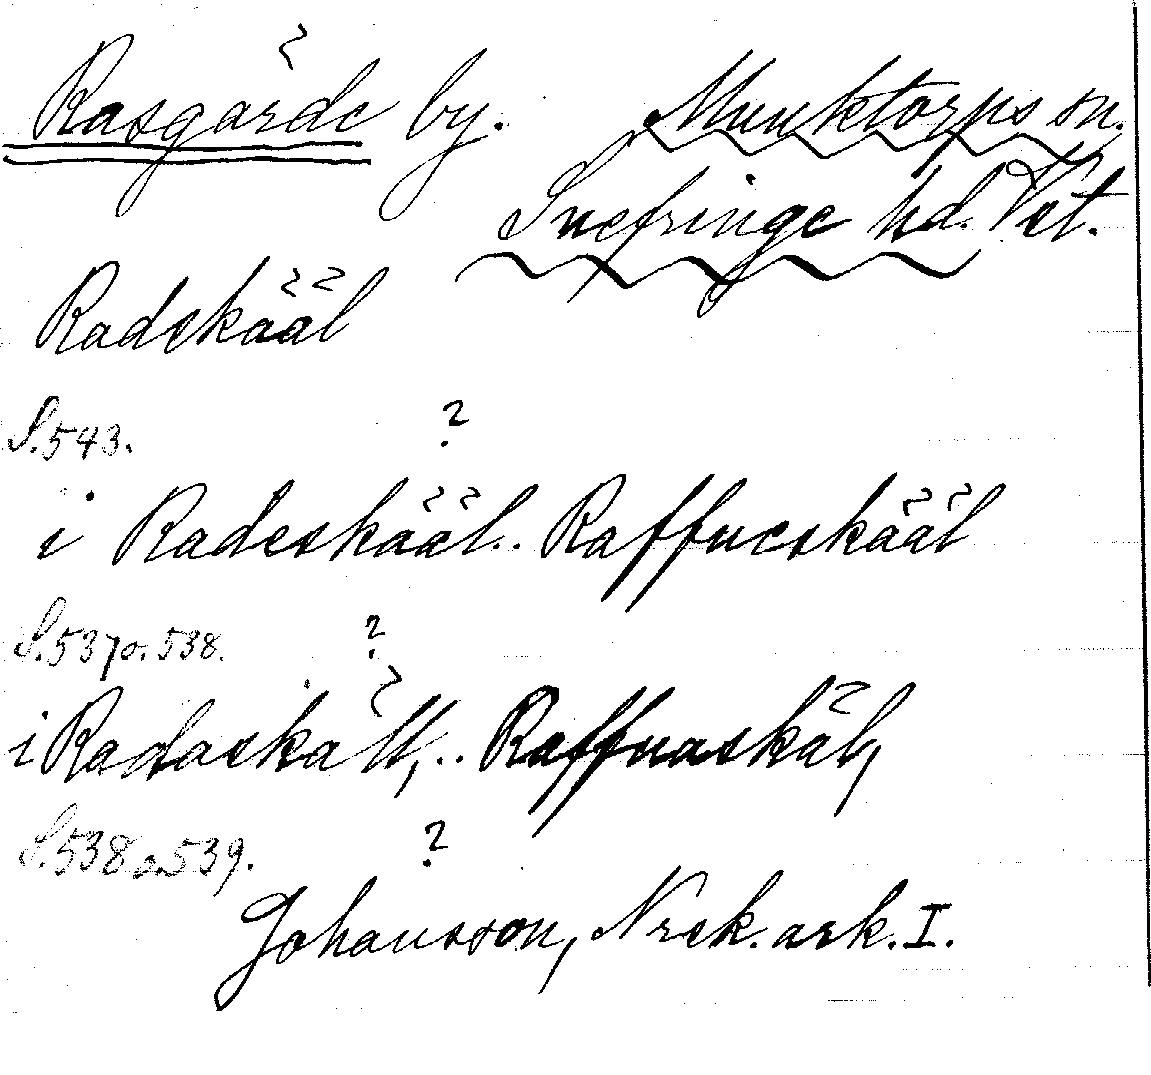 Rasgärde by. Munktorps sn.
Snefringe hd. Vst.
Radskääl
S. 543. ?
i Radeskääl.. Raffueskääl
S. 537 o. 538. ?
i Radaskäll, .. Raffuaskäl,
S. 538 o. 539. ?
Johansson, Nrck. ark. I.